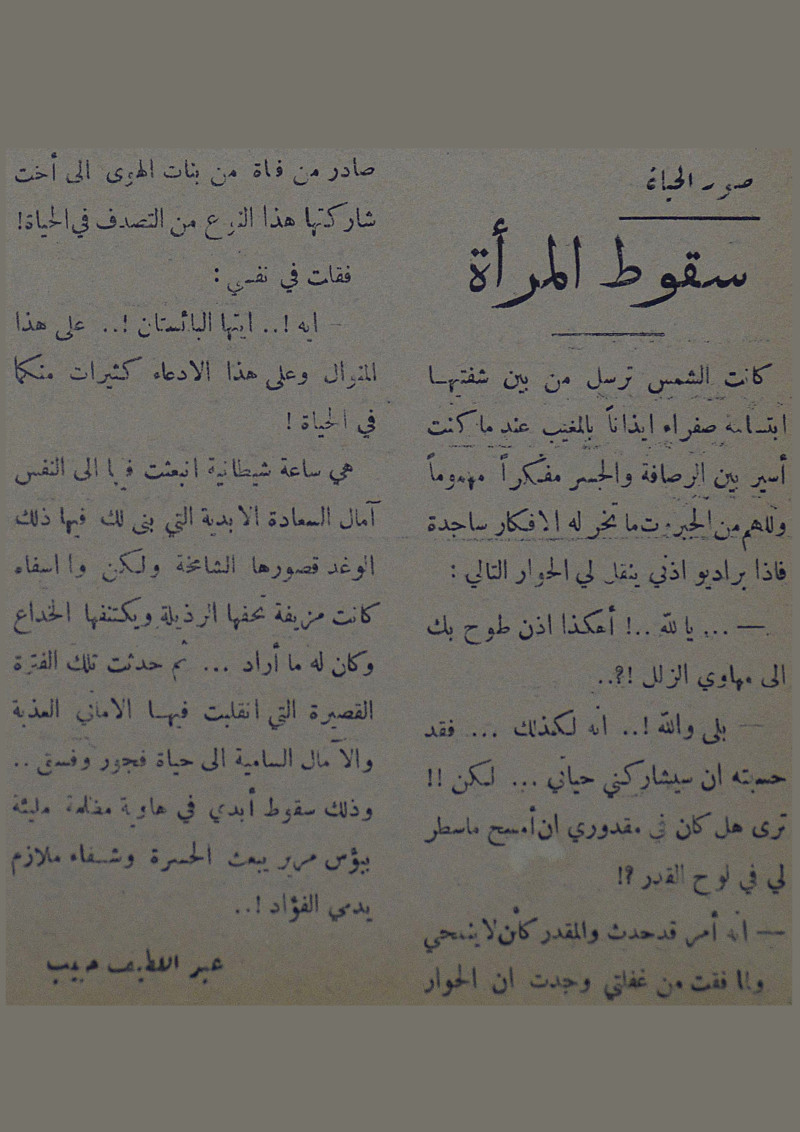 صور الحياة
سقوط المرأة
كانت الشمس ترسل من بين شفتيها
ابتسامة صفراء ايذاناً بالمغيب عند ما كنت
أسير بين الرصافة والجسر مفكراً مهموماً
وللهم من الجبروت ما تخر له الافكار ساجدة
فاذا براديو اذني ينقل لي الحوار التالي :
— ... يا لله ..! أهكذا اذن طوح بك
الى مهاوي الزلل !?..
— بلى والله !.. انه لكذلك ... فقد
حسبته ان سيشاركني حياتي ... لكن !!
ترى هل كان في مقدوري ان أمسح ماسطر
لي في لوح القدر ?!
— انه أمر قدحدث والمقدر كأن لا ينمحي
ولما فقت من غفلتي وجدت ان الحوار
صادر من فتاة من بنات الهوى الى أخت
شاركتها هذا النوع من التصدف في الحياة!
فقلت في نفسي :
— ايه !.. ايتها البائستان !.. على هذا
المنوال وعلى هذا الادعاء كثيرات منكما
في الحياة !
هي ساعة شيطانية انبعثت فيها الى النفس
آمال السعادة الابدية التي بنى لك فيها ذلك
الوغد قصورها الشامخة ولكن وا اسفاه
كانت مزيفة تحفها الرذيلة ويكتنفها الخداع
وكان له ما أراد ... ثم حدثت تلك الفترة
القصيرة التي انقلبت فيها الاماني العذبة
والآمال السامية الى حياة فجور وفسق ..
وذلك سقوط أبدي في هاوية مظلمة مليئة
ببؤس مرير يبعث الحسرة وشقاء ملازم
يدمي الفؤاد !..
عبد اللطيف حبيب